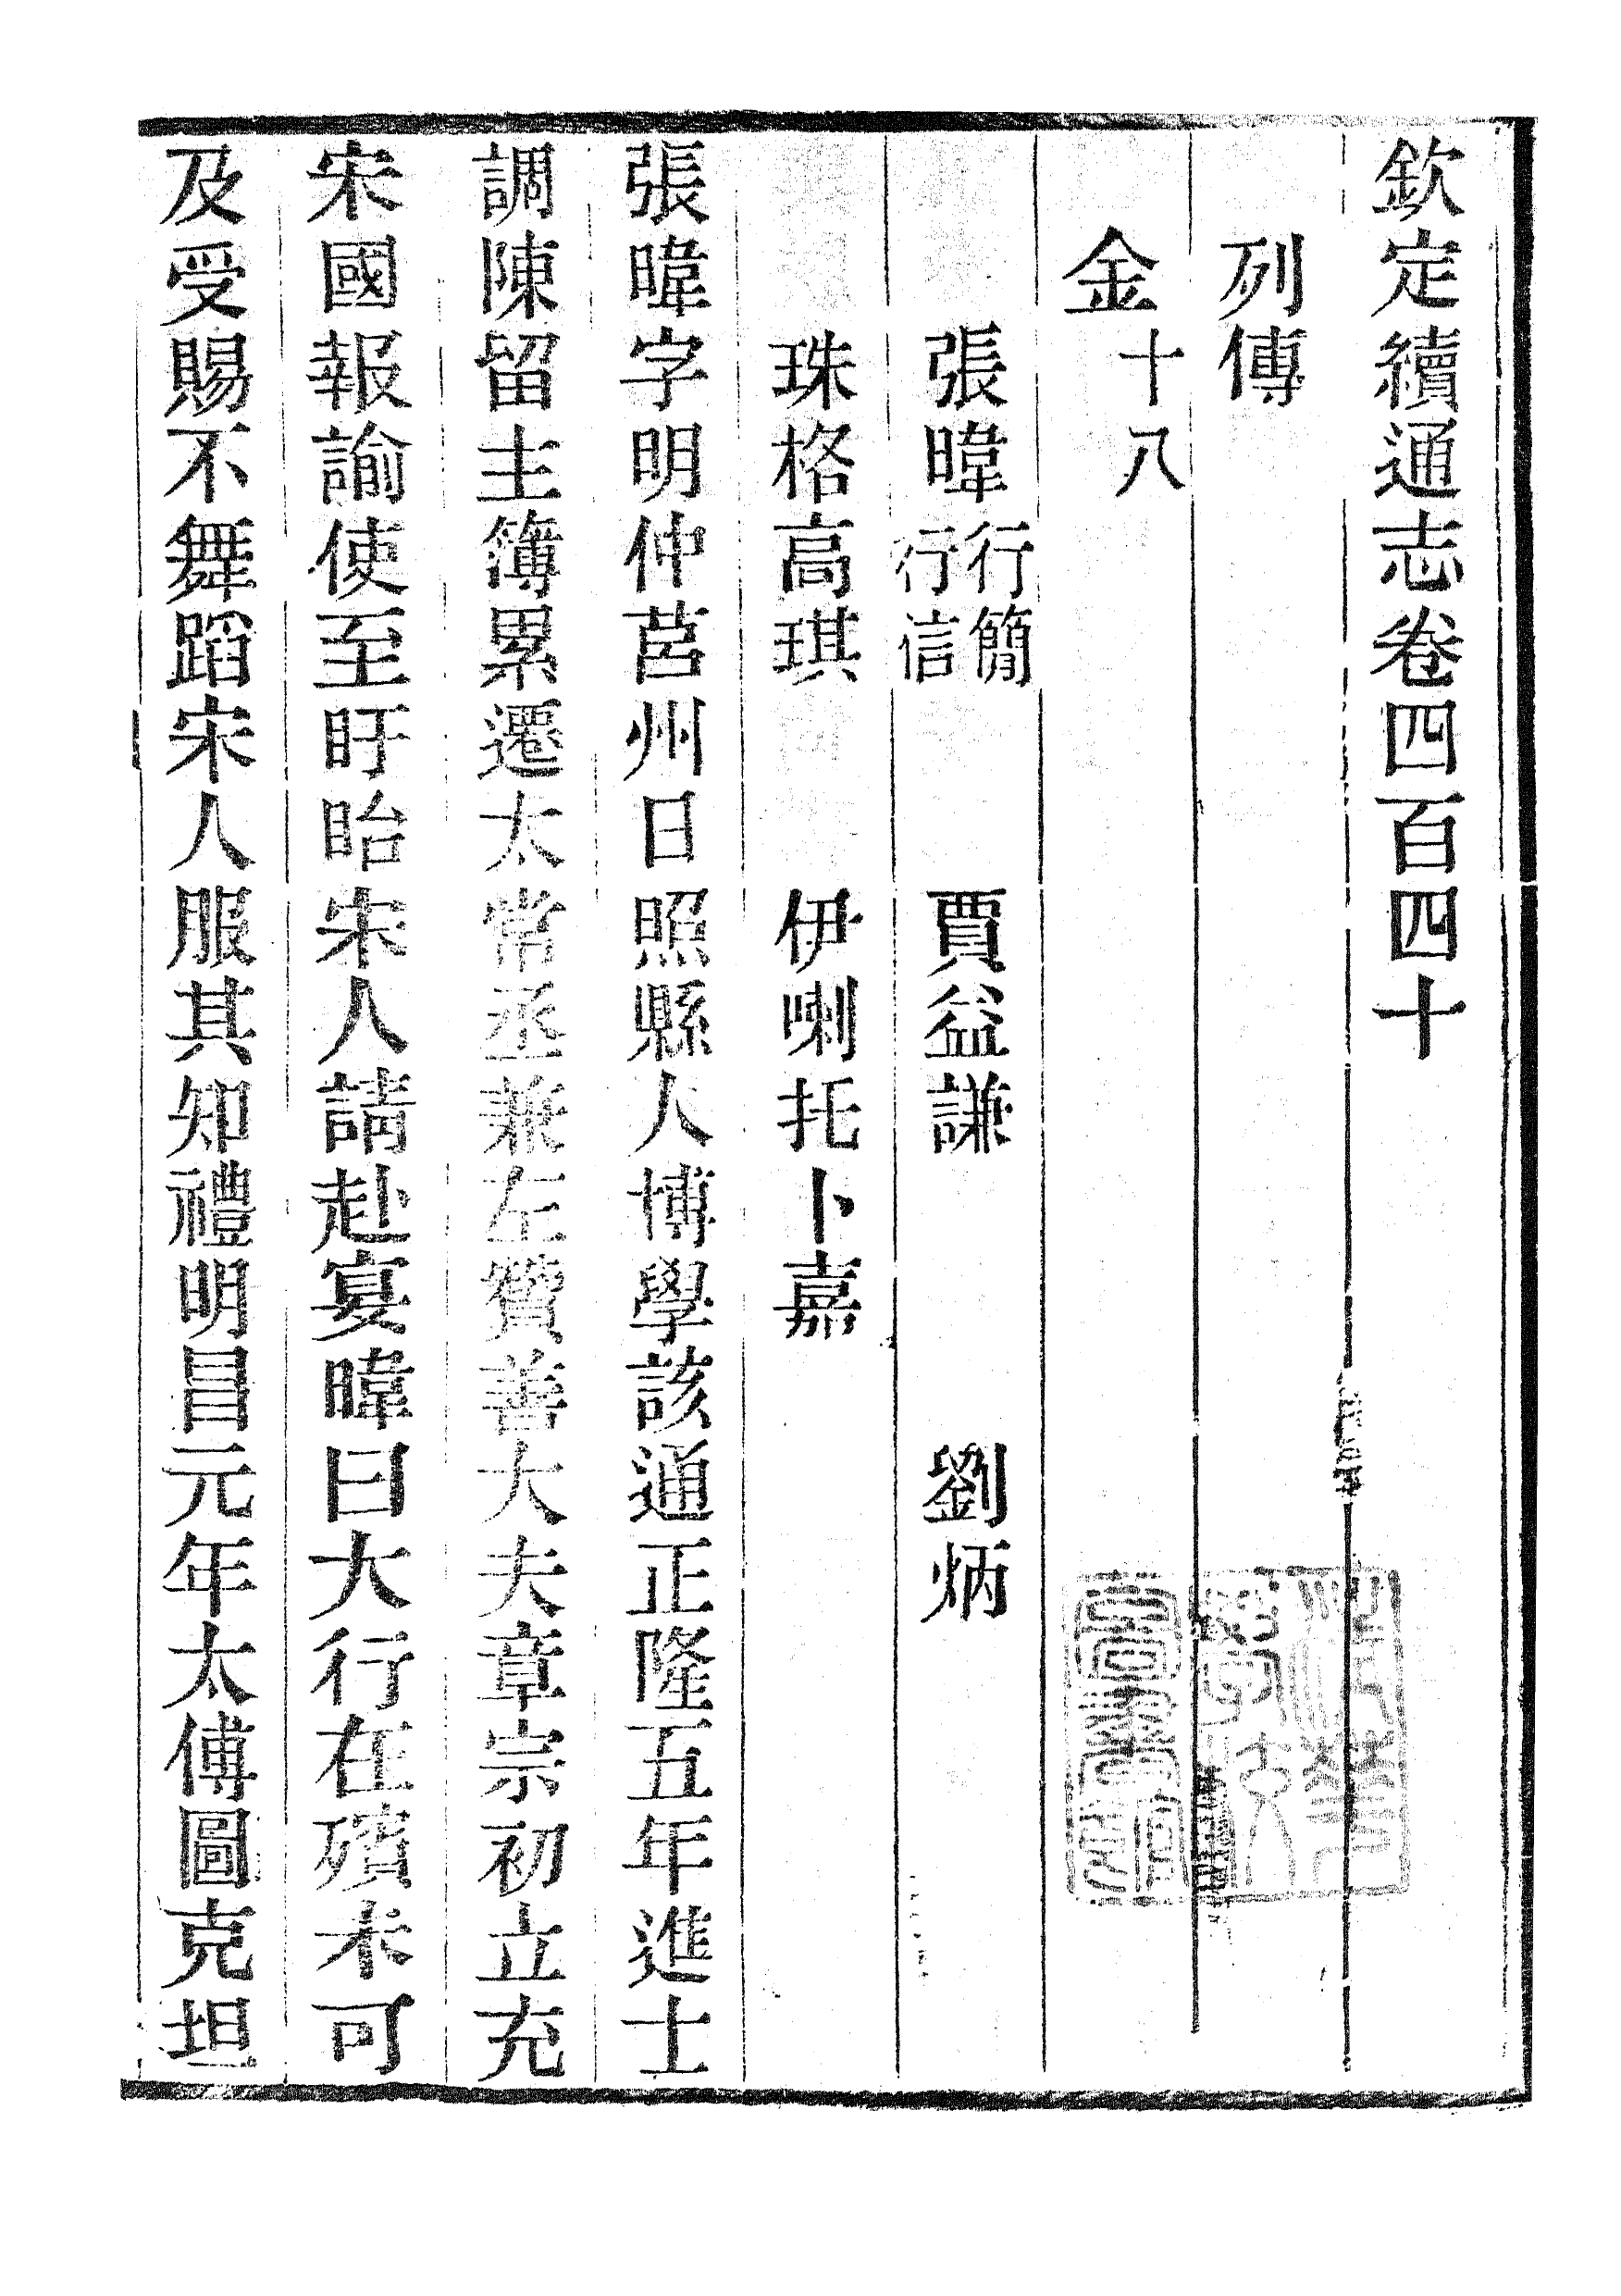 欽定續通志卷四百四十
列傳
金十八
張暐行簡行信 賈益謙 劉炳
珠格高琪 伊喇托卜嘉
張暐字明仲莒州日照縣人博學該通正隆五年進士
調陳留主簿累遷太常丞兼左贊善大夫章宗初立充
宋國報諭使至盱眙宋人請赴宴暐曰大行在殯未可
及受賜不舞蹈宋人服其知禮明昌元年太傅圖克坦